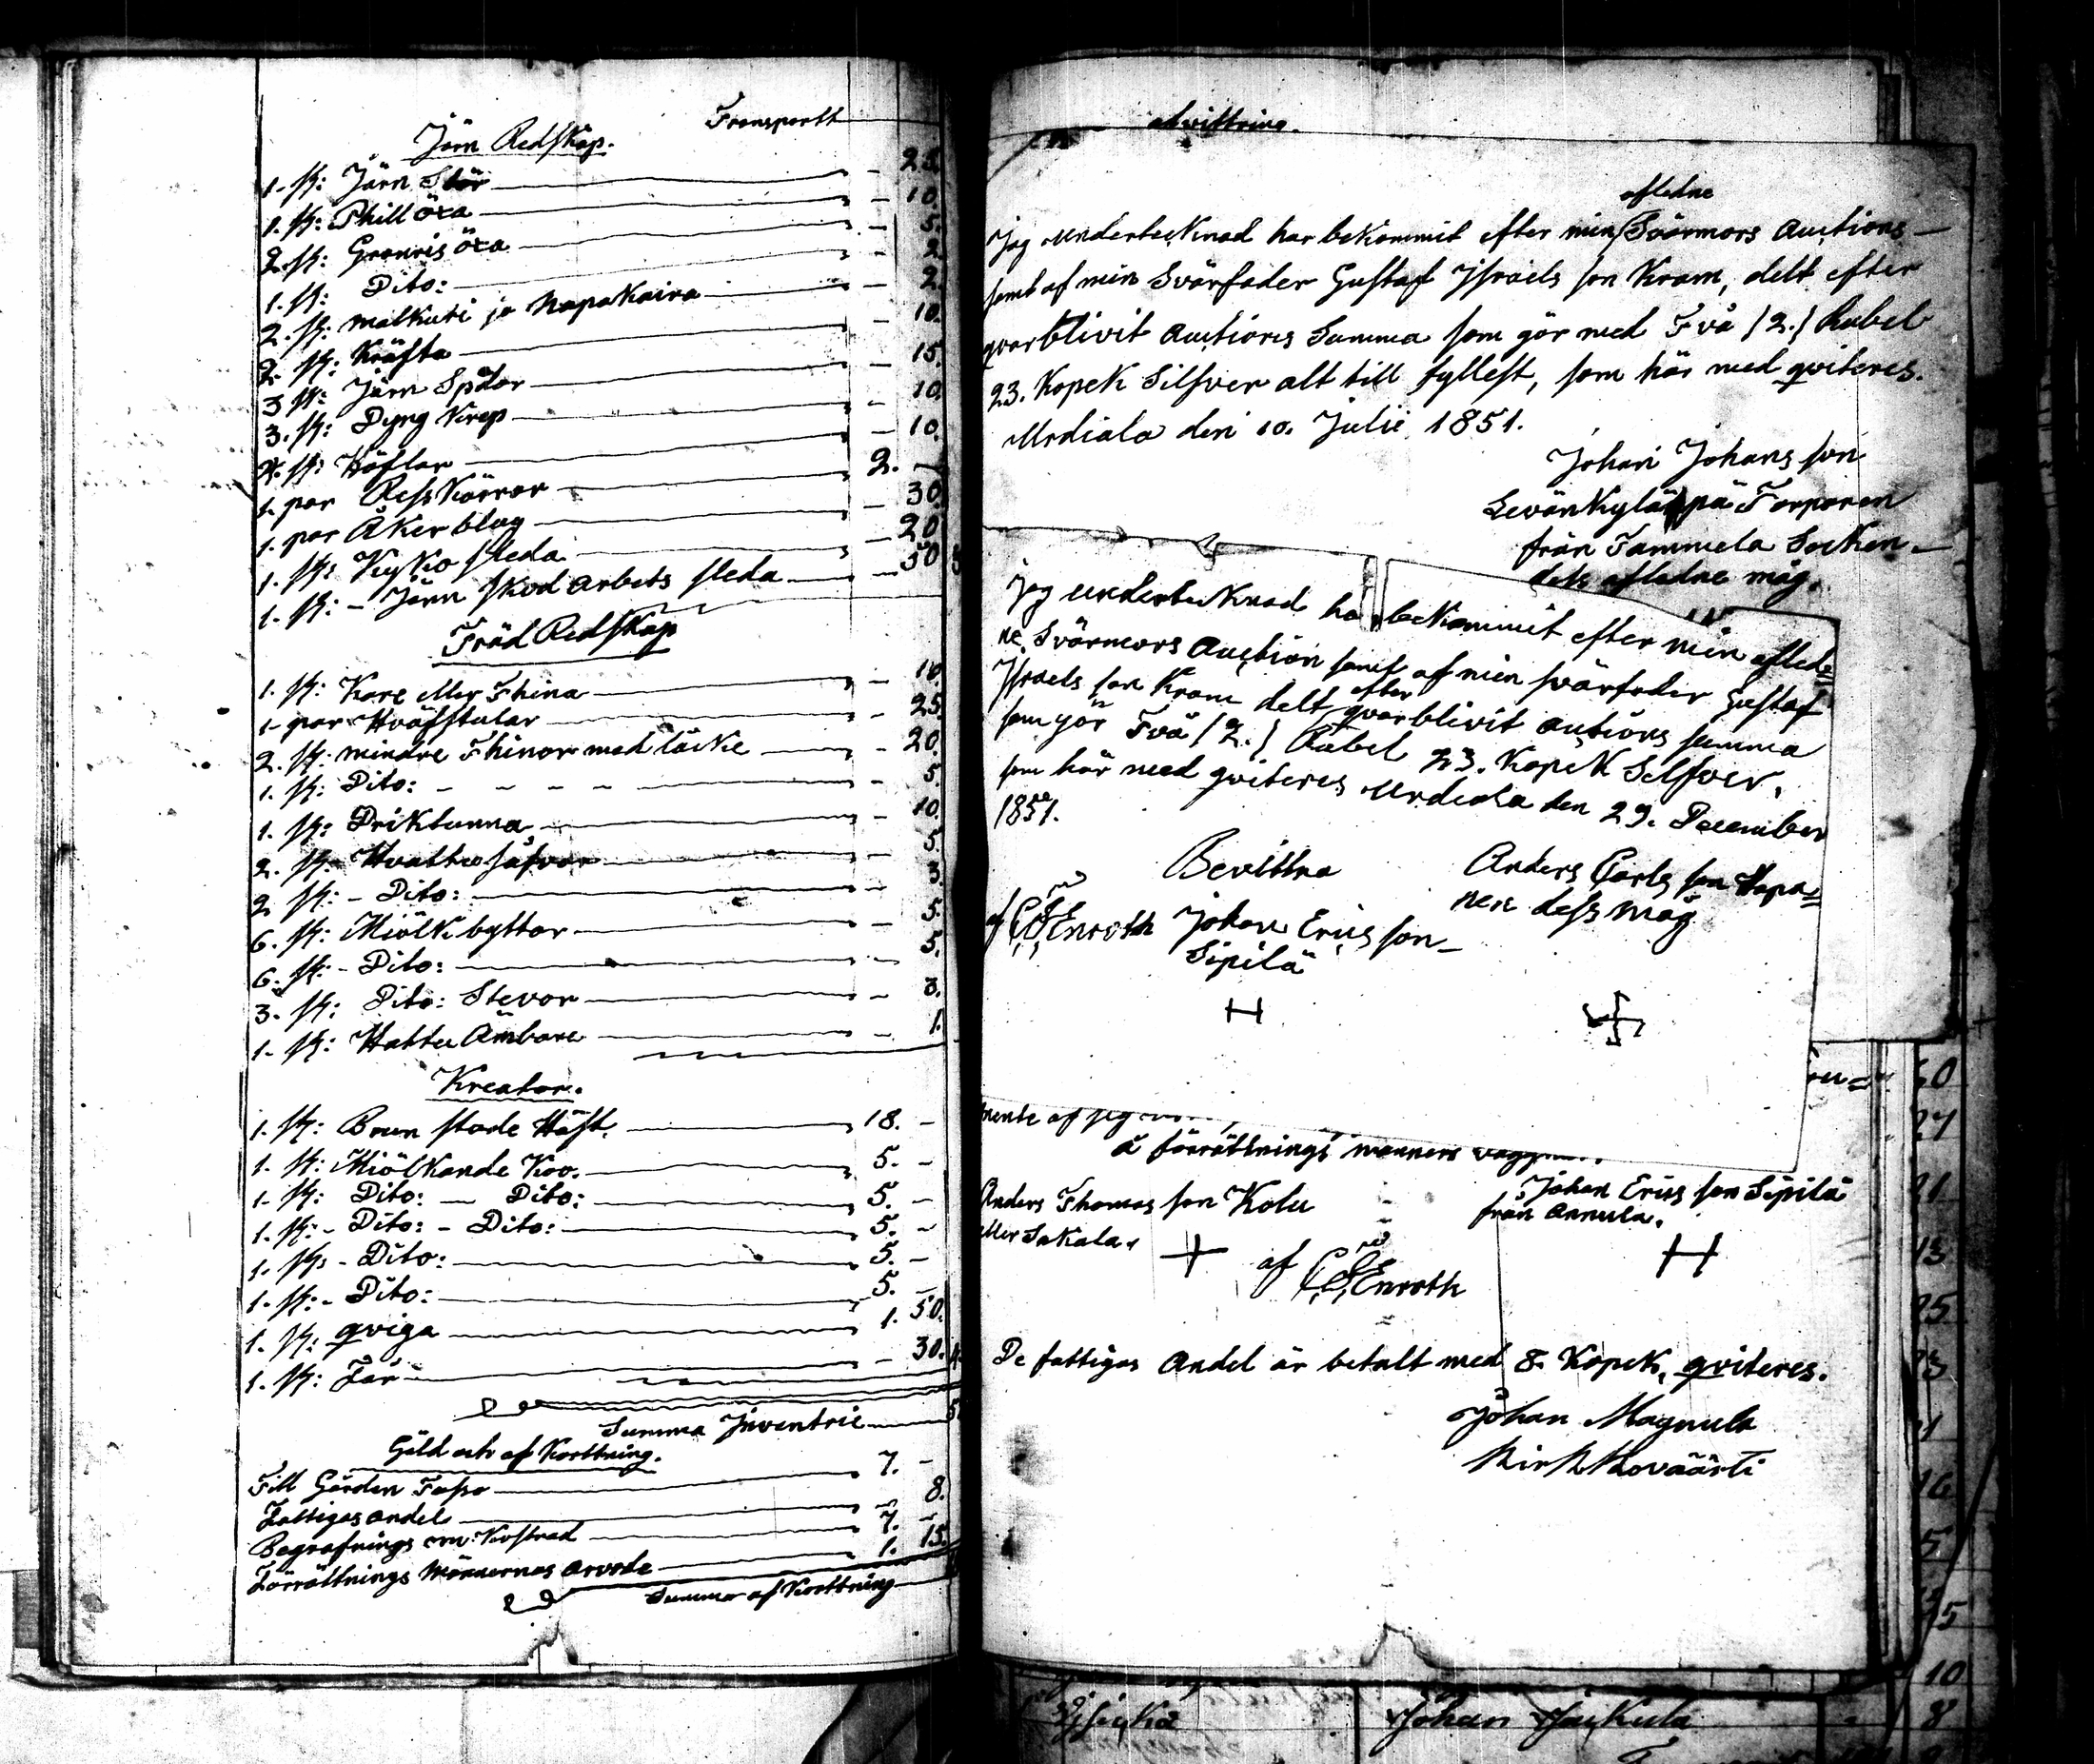 Transportt
Jörn Redskap.
1. st: Järn Stör - 25.
1. st: Thill öxa - 10.
2. st: Granris öxa - 5.
1. st: Dito: - 2.
2. st: malkuri ja Napakaira - 2.
2. st: Kräfta - 10.
3 st: Järn Spador - 15.
3. st: Dyng Krep - 10.
2. st: Höflar - 10.
1. par Ress Kärror 2. -
1. par Åkerblog - 30.
1. st: Kyrko sleda - 20
1. st: - Järn skod arbets sleda - 50
Träd Redskap
1. st: Kare eller Thina - 10.
1. par Wäfstolar - 25.
2. st: mindre Thinor med läcke - 20.
1. st: Dito: - - - - 5.
1. st: Driktunna - 10.
2. st: Watten såfvar 5.
2 st: - Dito: - 3.
6. st: Miölk byttor - 5.
6. st: - Dito: - 5.
3. st: Dito: Stevor - 3.
1. st: Hattu Ämbare - 1.
Kreatur.
1. st: Brun stode Häst. 18. -
1. st: Miölkande Koo. 5. -
1. st: Dito: - Dito: 5. -
1. st: - Dito: - Dito: 5. -
1. st: - Dito: 5. -
1. st: - Dito: 5. -
1. st: qviga 1. 50.
1. st: Får - 30.
Summa Inventrie
Gäld och af Korttning.
Till Gården 7. -
Fattigas andel - 8.
Begrafnings om Kostnad 7. -
Förrättnings Männernas arvode 1. 15.
Summa af Korttning
afledne
Jag undertecknad har bekommit efter min Svärmors Auctions
samt af min Svärfader Gustaf Israels son Kram, delt efter
qvarblivit Auctions Summa som gör med Två (2.) Rubel
23. Kopek Silfver alt till fyllest, som här med qviteres.
Urdiala den 10. Julii 1851.
Johan Johans son
Levänkyläpä Torparen
från Tammela Socken
dess afledne måg.
Jag undertecknad har bekommit efter min afled=
ne Svärmors Auction samt af min svärfader Gustaf
Israels son Kram delt efter qvarblivit auctions summa
som gör Två (2.) Rubel 23. Kopek Selfver,
som här med qviteres Urdiala den 29. December
1851.
Bevittna
Anders Carls son Hopa=
nen dess Måg
af Enroth Johan Erics son
Sipilä
H
mente af jeg
å förrättnings manners
Anders Thomas son Kolu
eller Sakala.
Johan Erics son Sipilä
från Annula.
af Enroth
H
De fattigas Andel är betalt med 8. Kopek, qviteres.
Johan Magnula
Kirkkoväärti
60
27
21
13
25
10
8
Johan